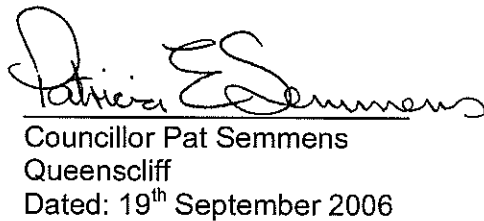 Patricia E Semmens
Councillor Pat Semmens
Queenscliff
Dated: 19th September 2006